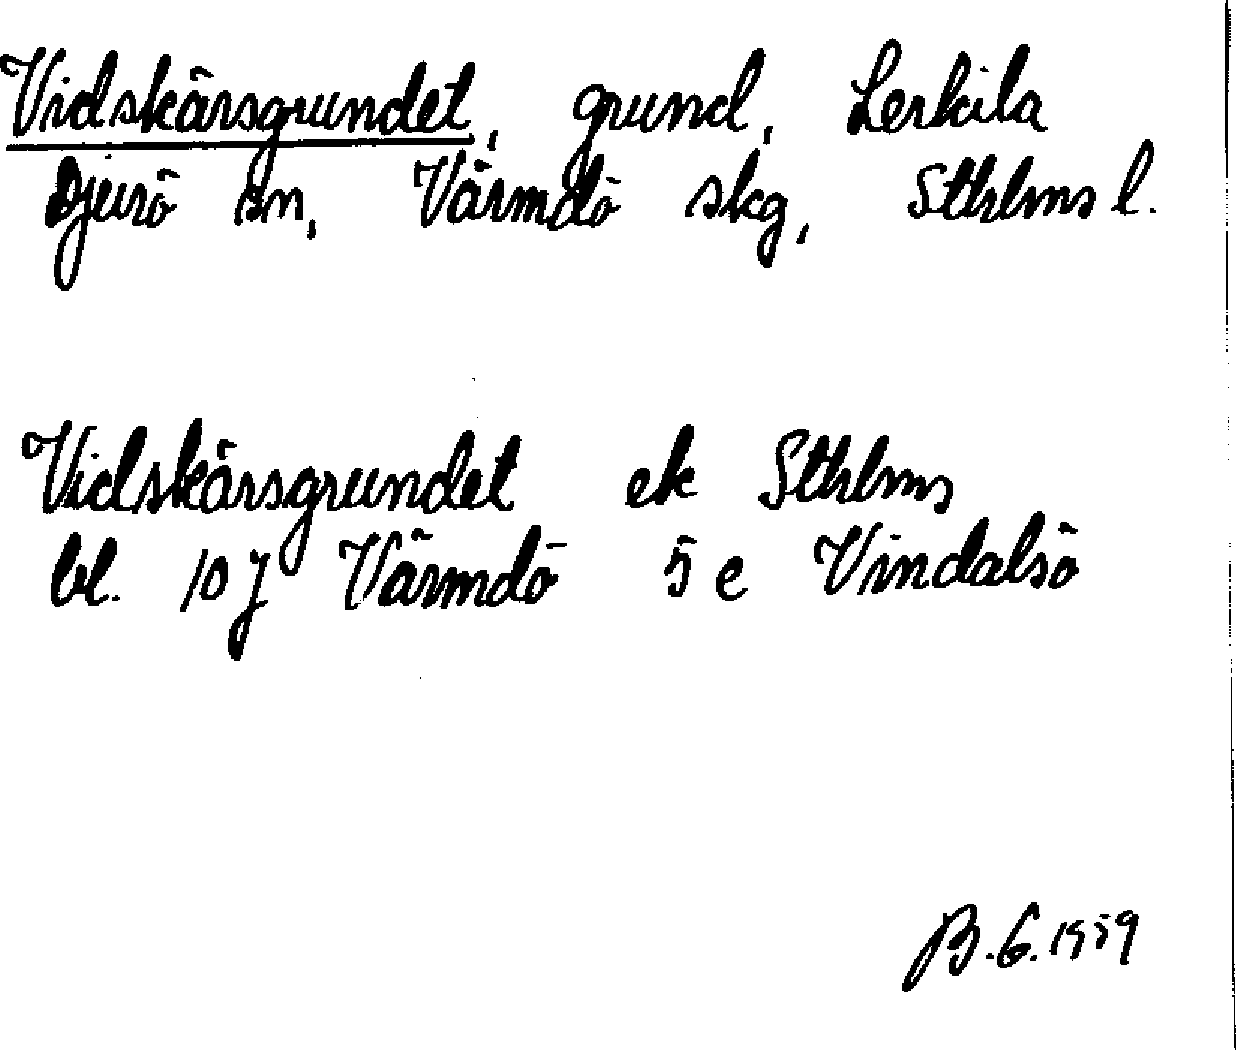 Vidskärsgrundet, grund, Lerkila
Djurö sn, Värmdö skg, Sthlms l.
Vidskärsgrundet ek Sthlms
bl. 10 J Värmdö 5 e Vindalsö
B.G. 1959